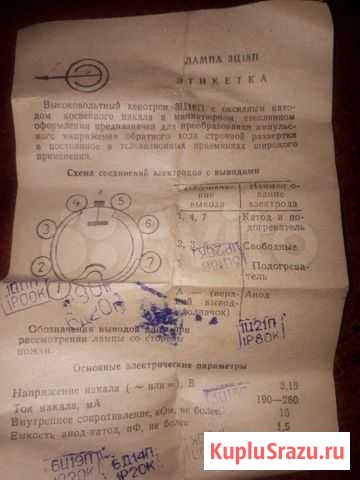 ЛАМПА 3Ц18П
ЭТИКЕТКА
Высоковольтный кенотрон 3Ц18П с оксидным като-
дом косвенного накала в миниатюрном стеклянном
оформлении предназначен для преобразования импульс-
ного напряжения обратного хода строчной развертки
в постоянное в телевизионных приемниках широкого
применения.
Схема соединений электродов с выводами
4
5
3
6
2
7
1
ние
вывода
Наимено-
вание
электрода
1, 4, 7
Катод и по-
догреватель
Свободные
5
Подогрева-
тель
А — (верх-
ний вывод-
колпачок)
Анод
6Ц19П
1Р20К
1Ц11П
1Р00К
90р
6р20к
1Ц21П
1Р80К
Обозначения выводов даны при
рассмотрении лампы со стороны
ножки.
Основные электрические параметры
Напряжение накала (~ или =), В 3,15
Ток накала, мА 190—230
Внутреннее сопротивление, кОм, не более 15
Емкость анод-катод, пФ, не более 1,5
6Ц19П
1Р20К
6Д14П
1Р20К
KupluSrazu.ru